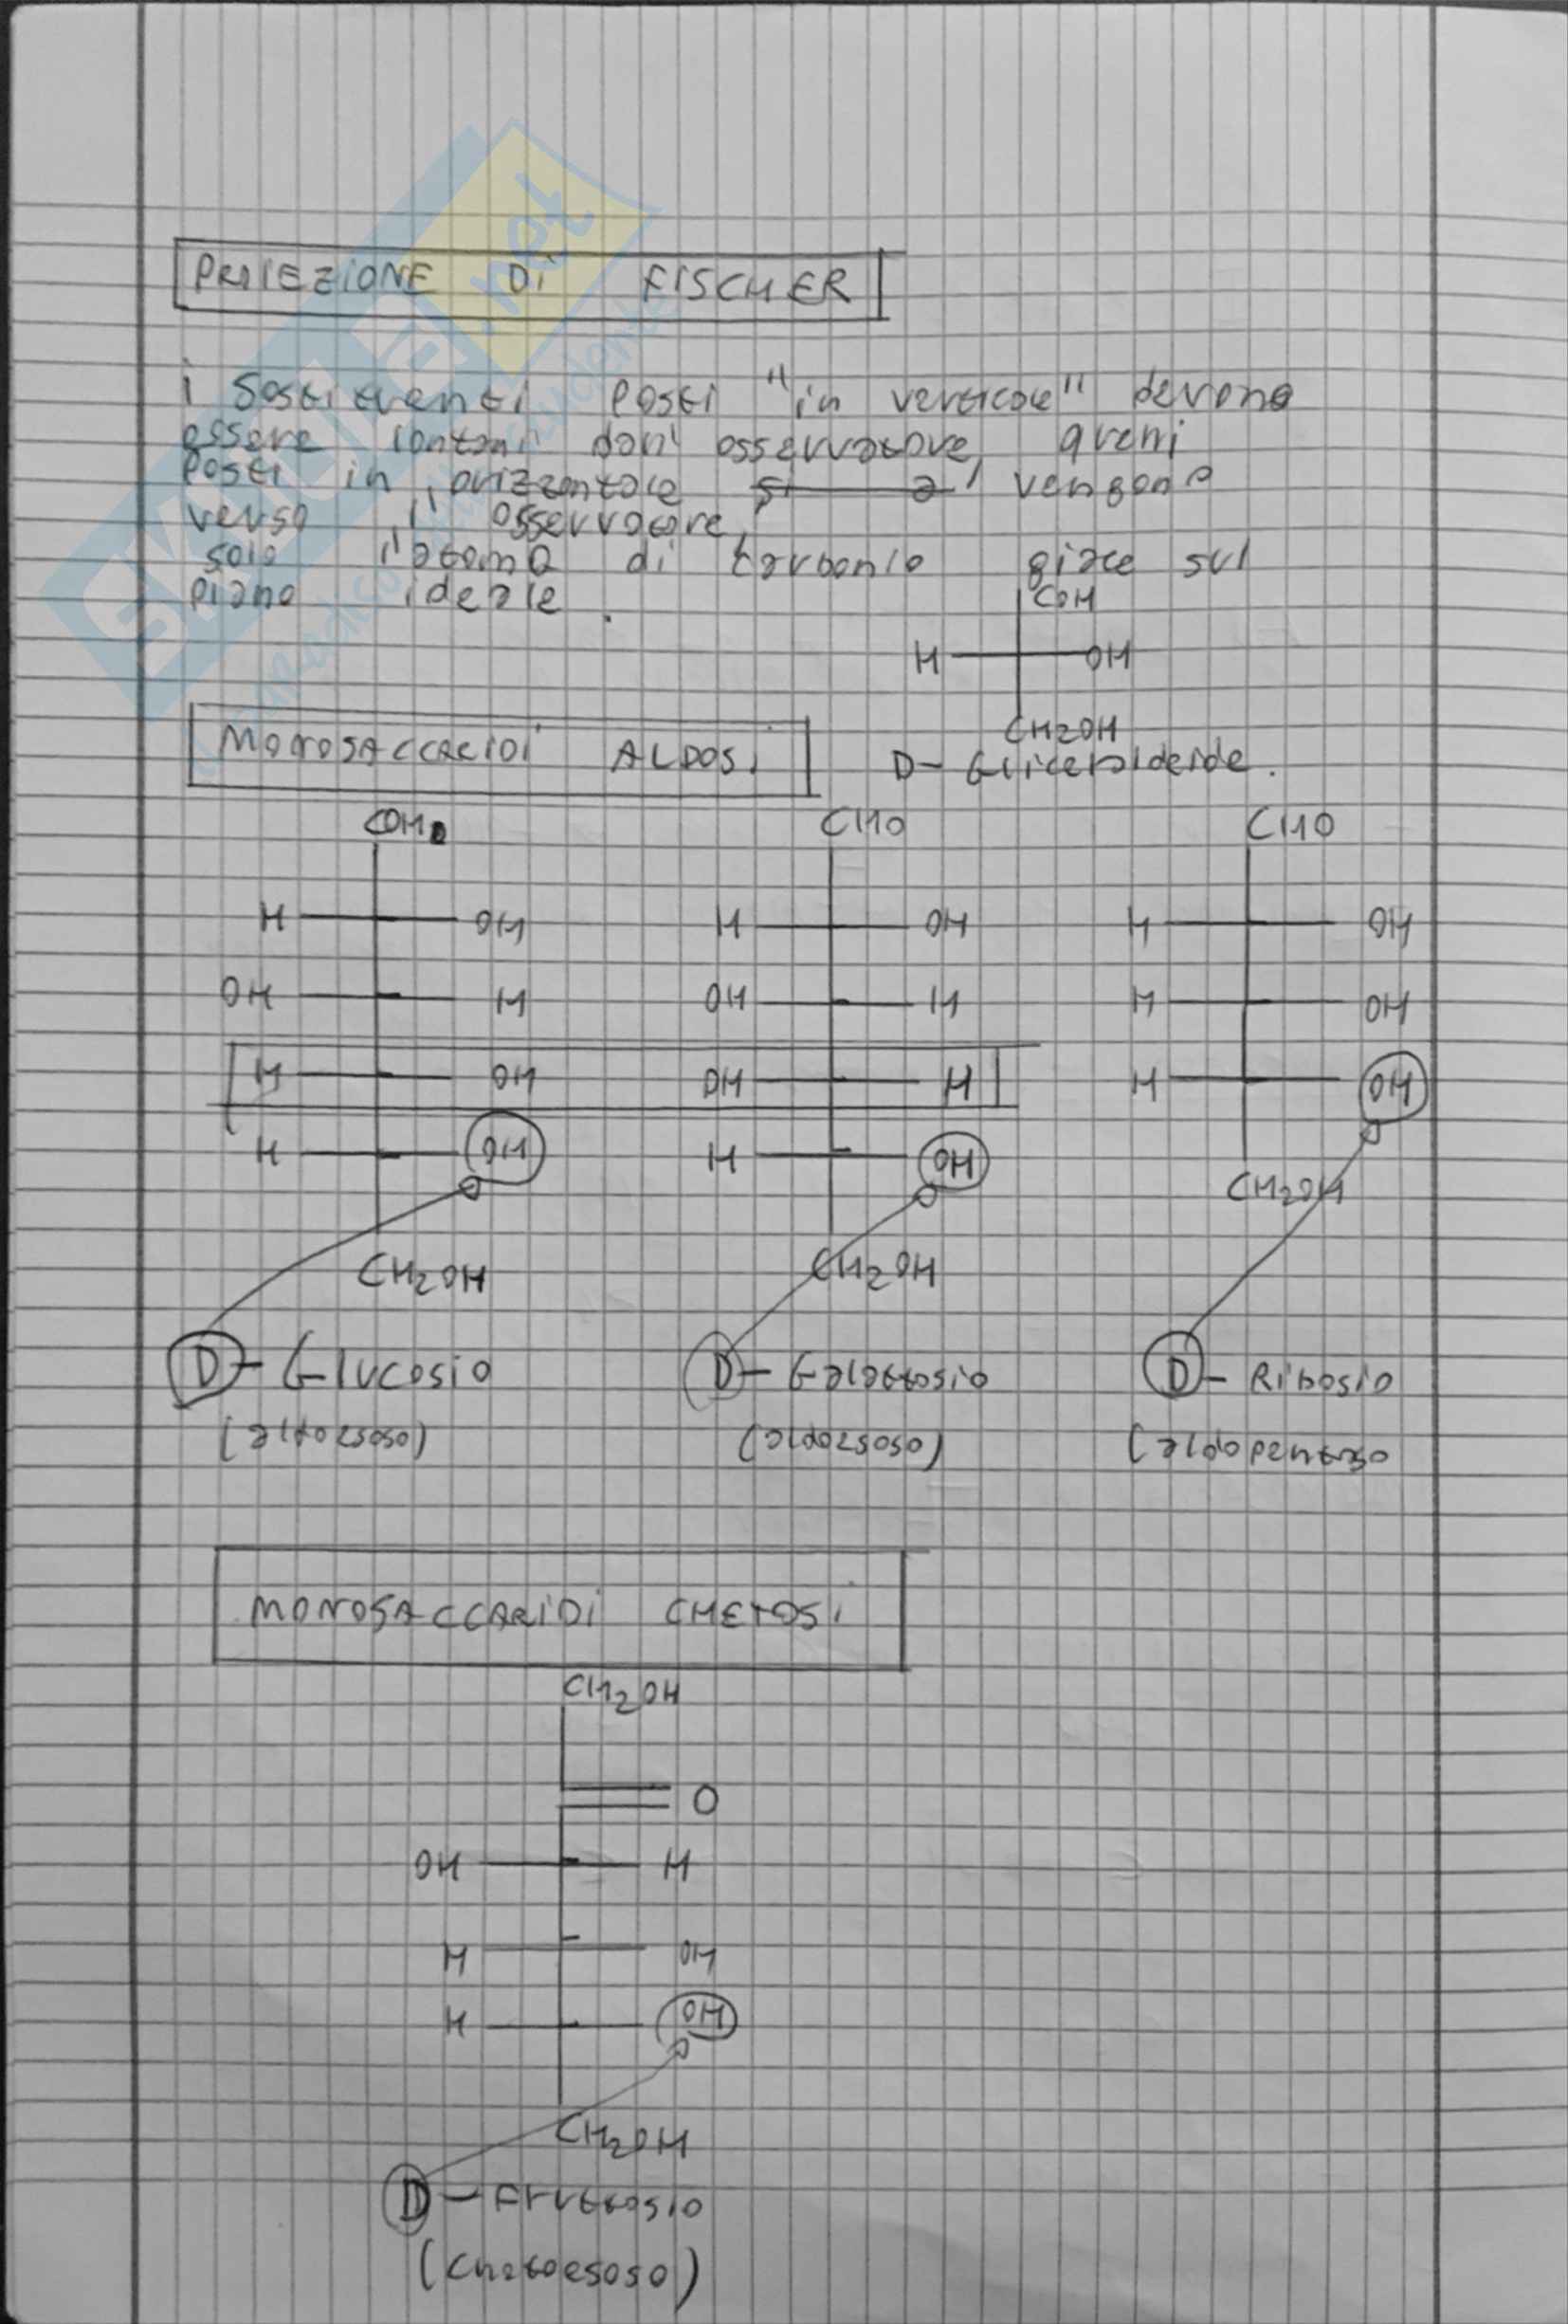 PROIEZIONE Di FISCHER
i sostituenti posti "in verticale" devono
essere lontani dall'osservatore, quelli
posti in orizzontale si a vengono
verso l'osservatore,
solo l'atomo di carbonio giace sul
piano ideale.
COH
H OH
CH2OH
MONOSACCARIDI ALDOSi
D- Gliceraldeide.
COH CHO CHO
H OH H OH H OH
OH H OH H H OH
H OH OH H H OH
H OH H OH
CH2OH
CH2OH CH2OH
D- Glucosio D- Galattosio D- Ribosio
(aldoesoso) (aldoesoso) (aldopentoso
MONOSACCARIDI CHETOSi
CH2OH
O
OH H
H OH
H OH
CH2OH
D- Fruttosio
(chetoesoso)
SKUOLA.net